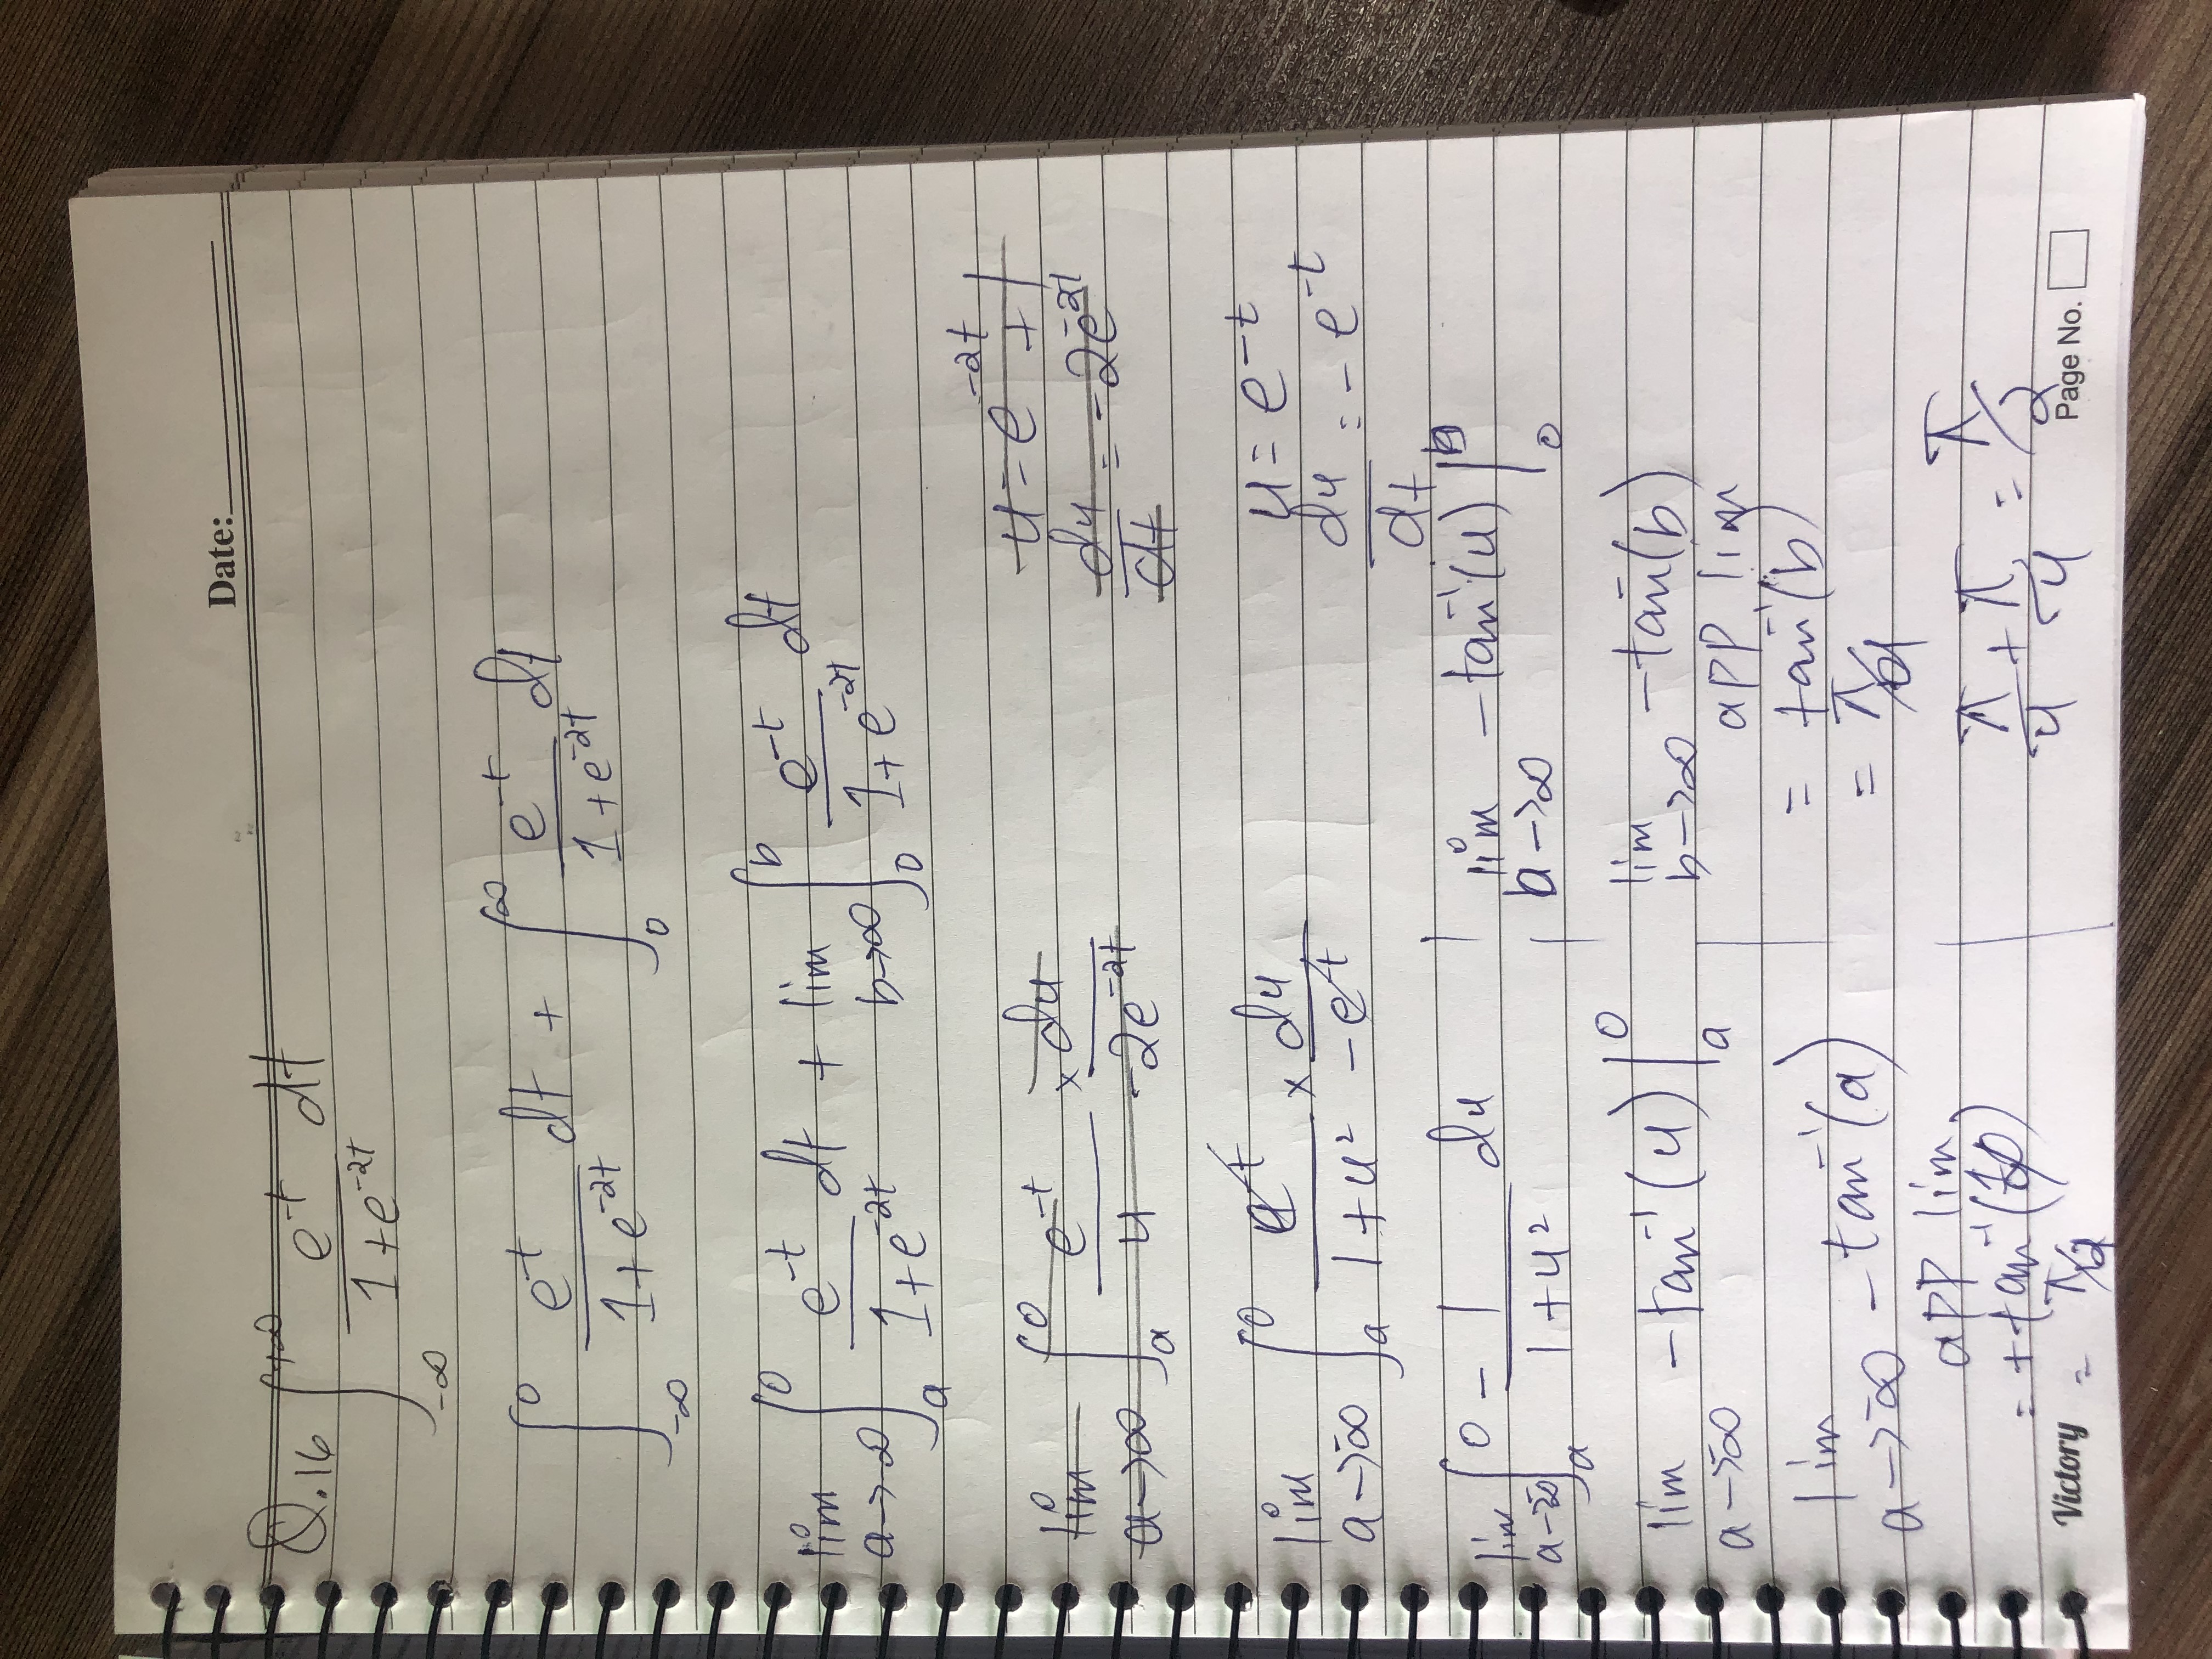 Date:
Q.16 ∫_{-∞}^{+∞} e^{-t}/(1+e^{-2t}) dt
∫_{-∞}^{0} e^{-t}/(1+e^{-2t}) dt + ∫_{0}^{∞} e^{-t}/(1+e^{-2t}) dt
lim a→-∞ ∫_{a}^{0} e^{-t}/(1+e^{-2t}) dt + lim b→∞ ∫_{0}^{b} e^{-t}/(1+e^{-2t}) dt
lim a→∞ ∫_{a}^{0} e^{-t}/u × du/(-2e^{-2t})
u = e^{-2t} + 1
du/dt = -2e^{-2t}
lim a→-∞ ∫_{a}^{0} e^{-t}/(1+u²) × du/(-e^{-t})
u = e^{-t}
du/dt = -e^{-t}
lim a→-∞ ∫_{a}^{0} -1/(1+u²) du
lim a→-∞ -tan^{-1}(u) |_{a}^{0}
lim a→-∞ -tan^{-1}(a)
app lim
= + tan^{-1}(
= π/
lim b→∞ -tan^{-1}(u) |_{0}^{b}
lim b→∞ -tan^{-}(b)
app lim
= tan^{-1}(b)
= π/
π/4 + π/4 = π/2
Victory
Page No.